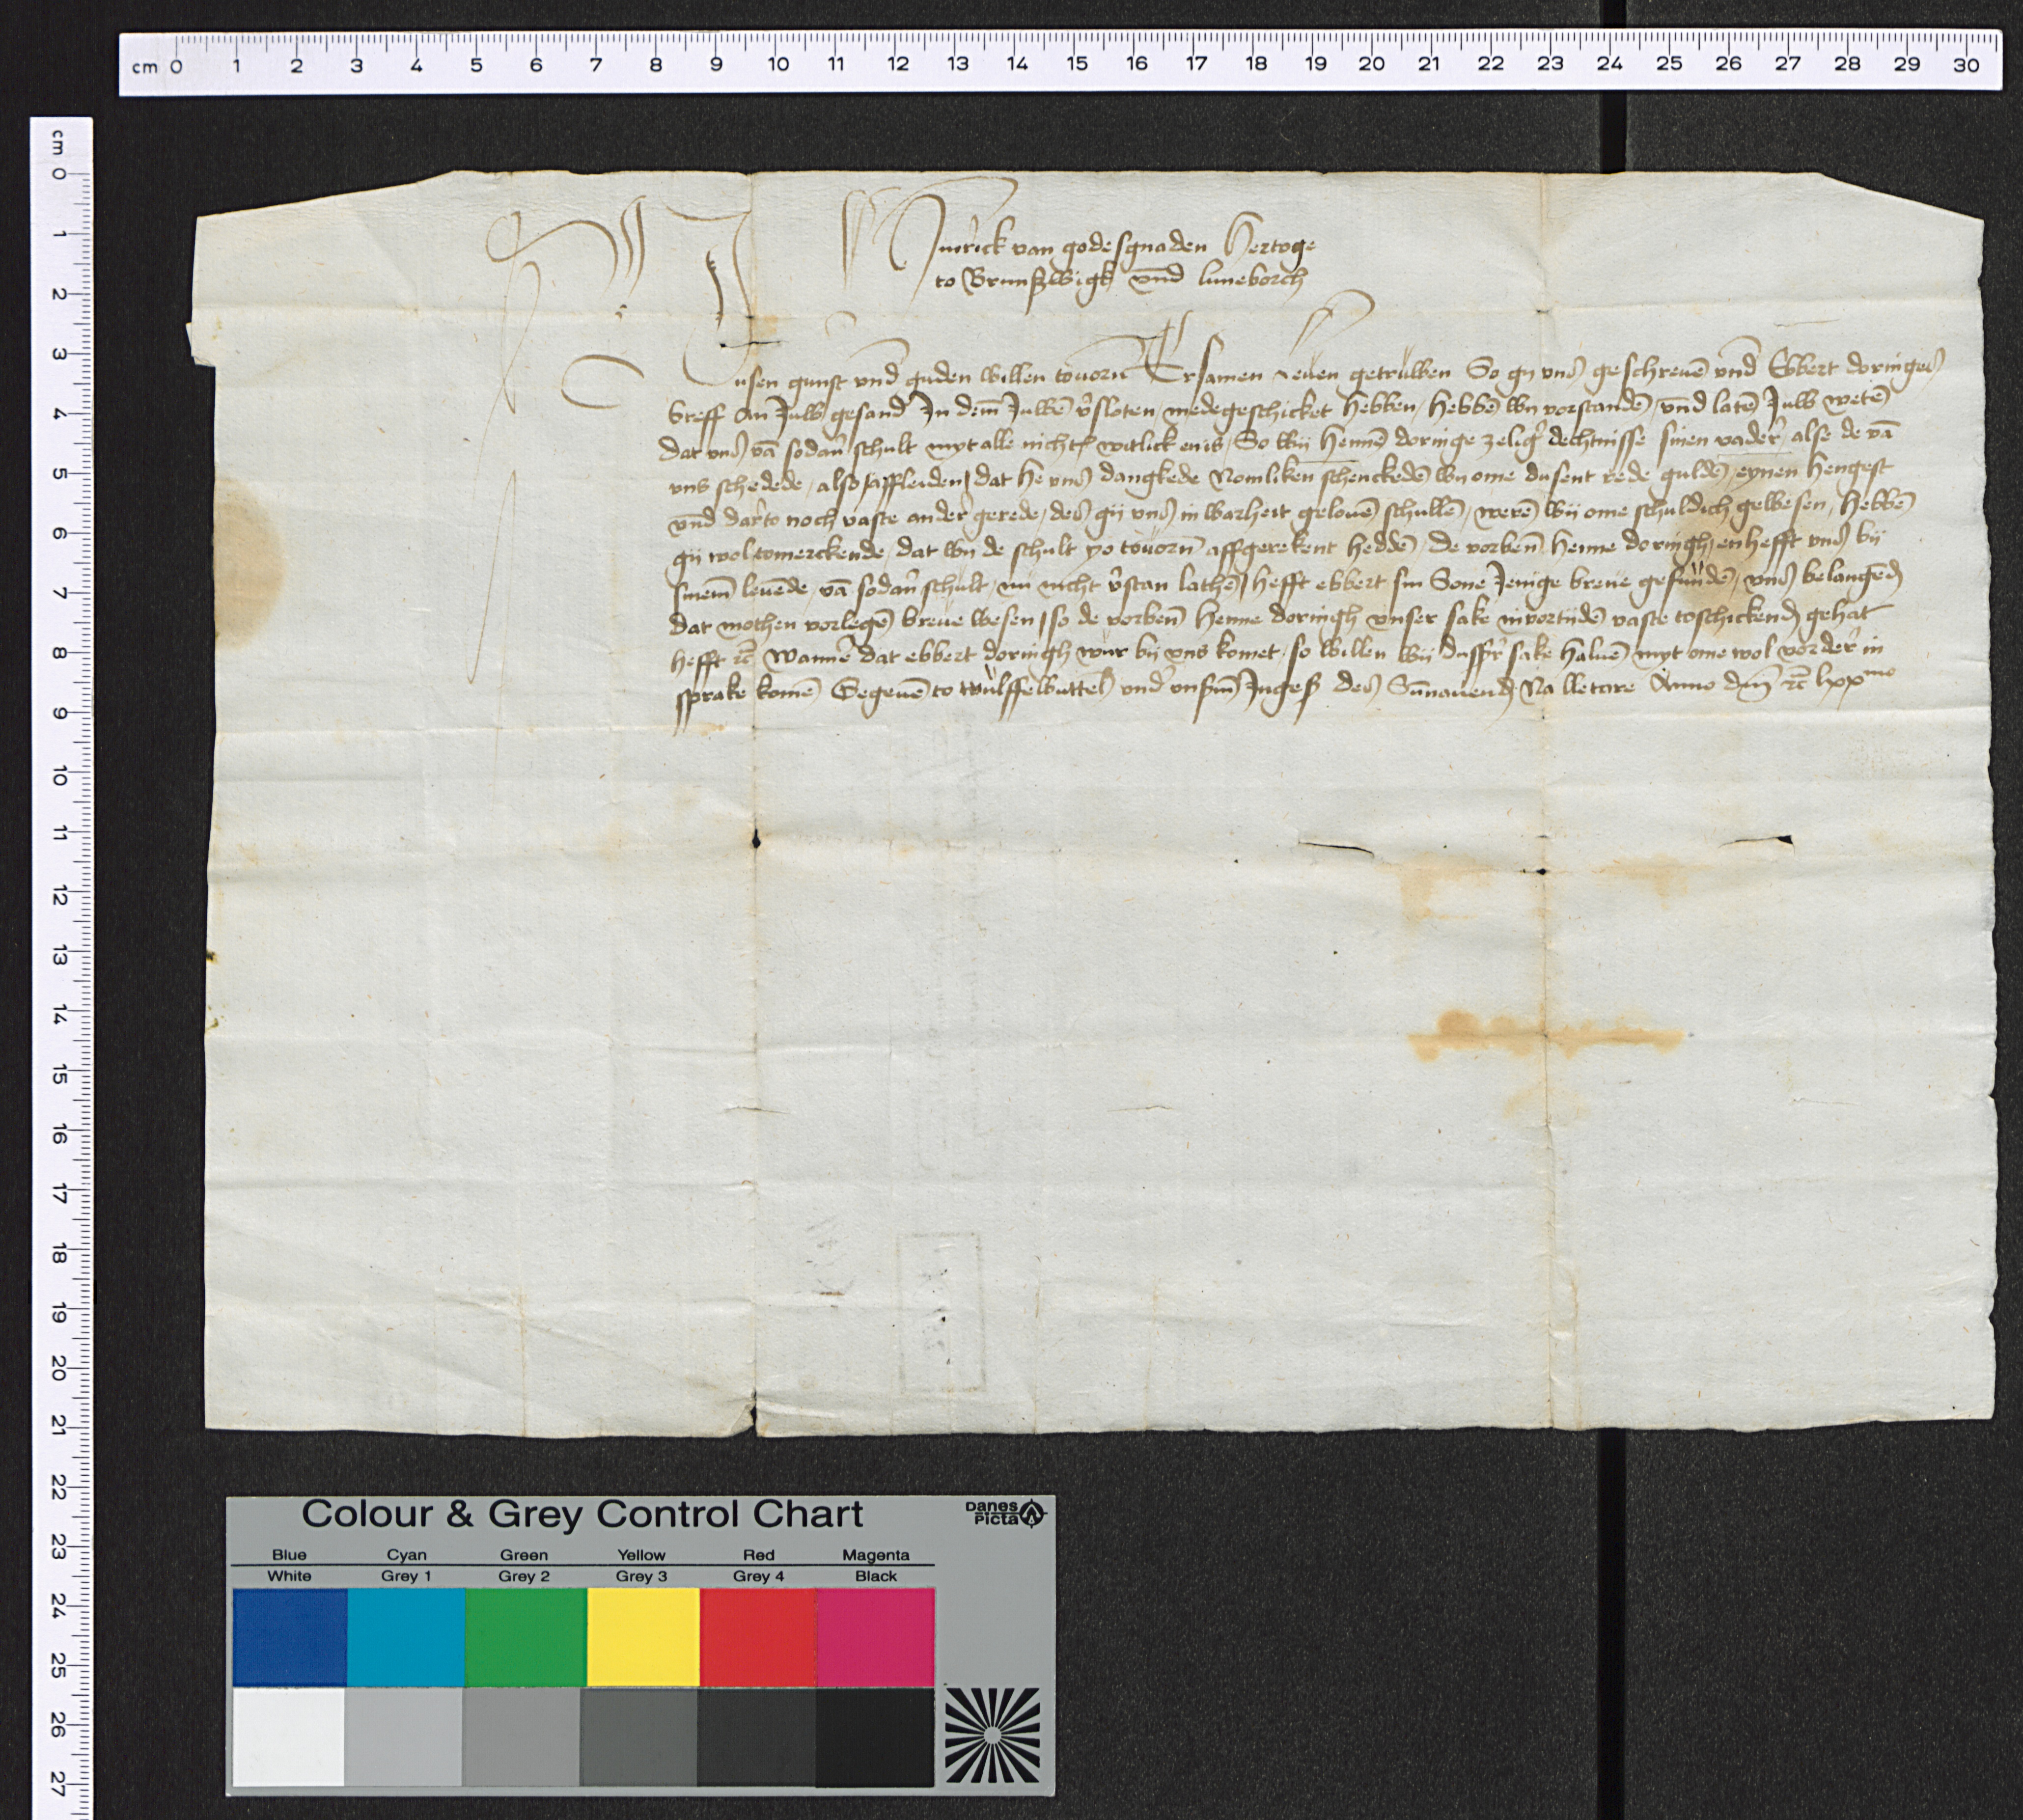 cm 0 1 2 3 4 5 6 7 8 9 10 11 12 13 14 15 16 17 18 19 20 21 22 23 24 25 26 27 28 29 30
cm 0 1 2 3 4 5 6 7 8 9 10 11 12 13 14 15 16 17 18 19 20 21 22 23 24 25 26 27
Hinrick van godesgnaden Hertoge
to Brunßwigk vnd luneborch
Unsen gunst vnd guden willen touorn Ersamen leuen getruwen So gy vns geschreuē vnd Ebbert doringes
breff an Juw gesand Jn dem Juwē v'sloten medegeschicket hebben / hebbē wy vorstandē / vnd latē Juw wetē
dat vns vā sodan' schult myt alle nichts witlick enis / So wij hennē doringe zelig' dechtnisse sinen vader' / alse de vā
vns schedede / also affleiden / dat he vns dangkede Nomliken schenckedē wy ome dusent rede guldē / eynen hengest
vnd dar'to noch vaste ander gerede / des gij vns in warheit gelouē schullē / werē wij ome schuldich gewesen / hebbē
gij wol tomerckende / dat wy de schult yo touorn affgerekent heddē / de vorben henne doringh / enhefft vns bij
sinem leuēde / vā sodan' schult / nu nicht v'stan lathē / hefft ebbert sin Sone Jenige breue gefundē / vns belangēd
dat mothen vorlegē breue wesen / so de vorben henne doringh vnser sake invortijdē vaste toschickend gehat
hefft rc wanner dat ebbert doringh wur bij vns komet / so willen wij dusser sake haluē myt ome wol vorder' in
sprake komē Gegeuē to wulffelbuttel vnd' vnßm Jngeß des Sunauends Na lletare Anno dm rc lxxmo
Colour & Grey Control Chart
Danes
Picta
Blue Cyan Green Yellow Red Magenta
White Grey 1 Grey 2 Grey 3 Grey 4 Black